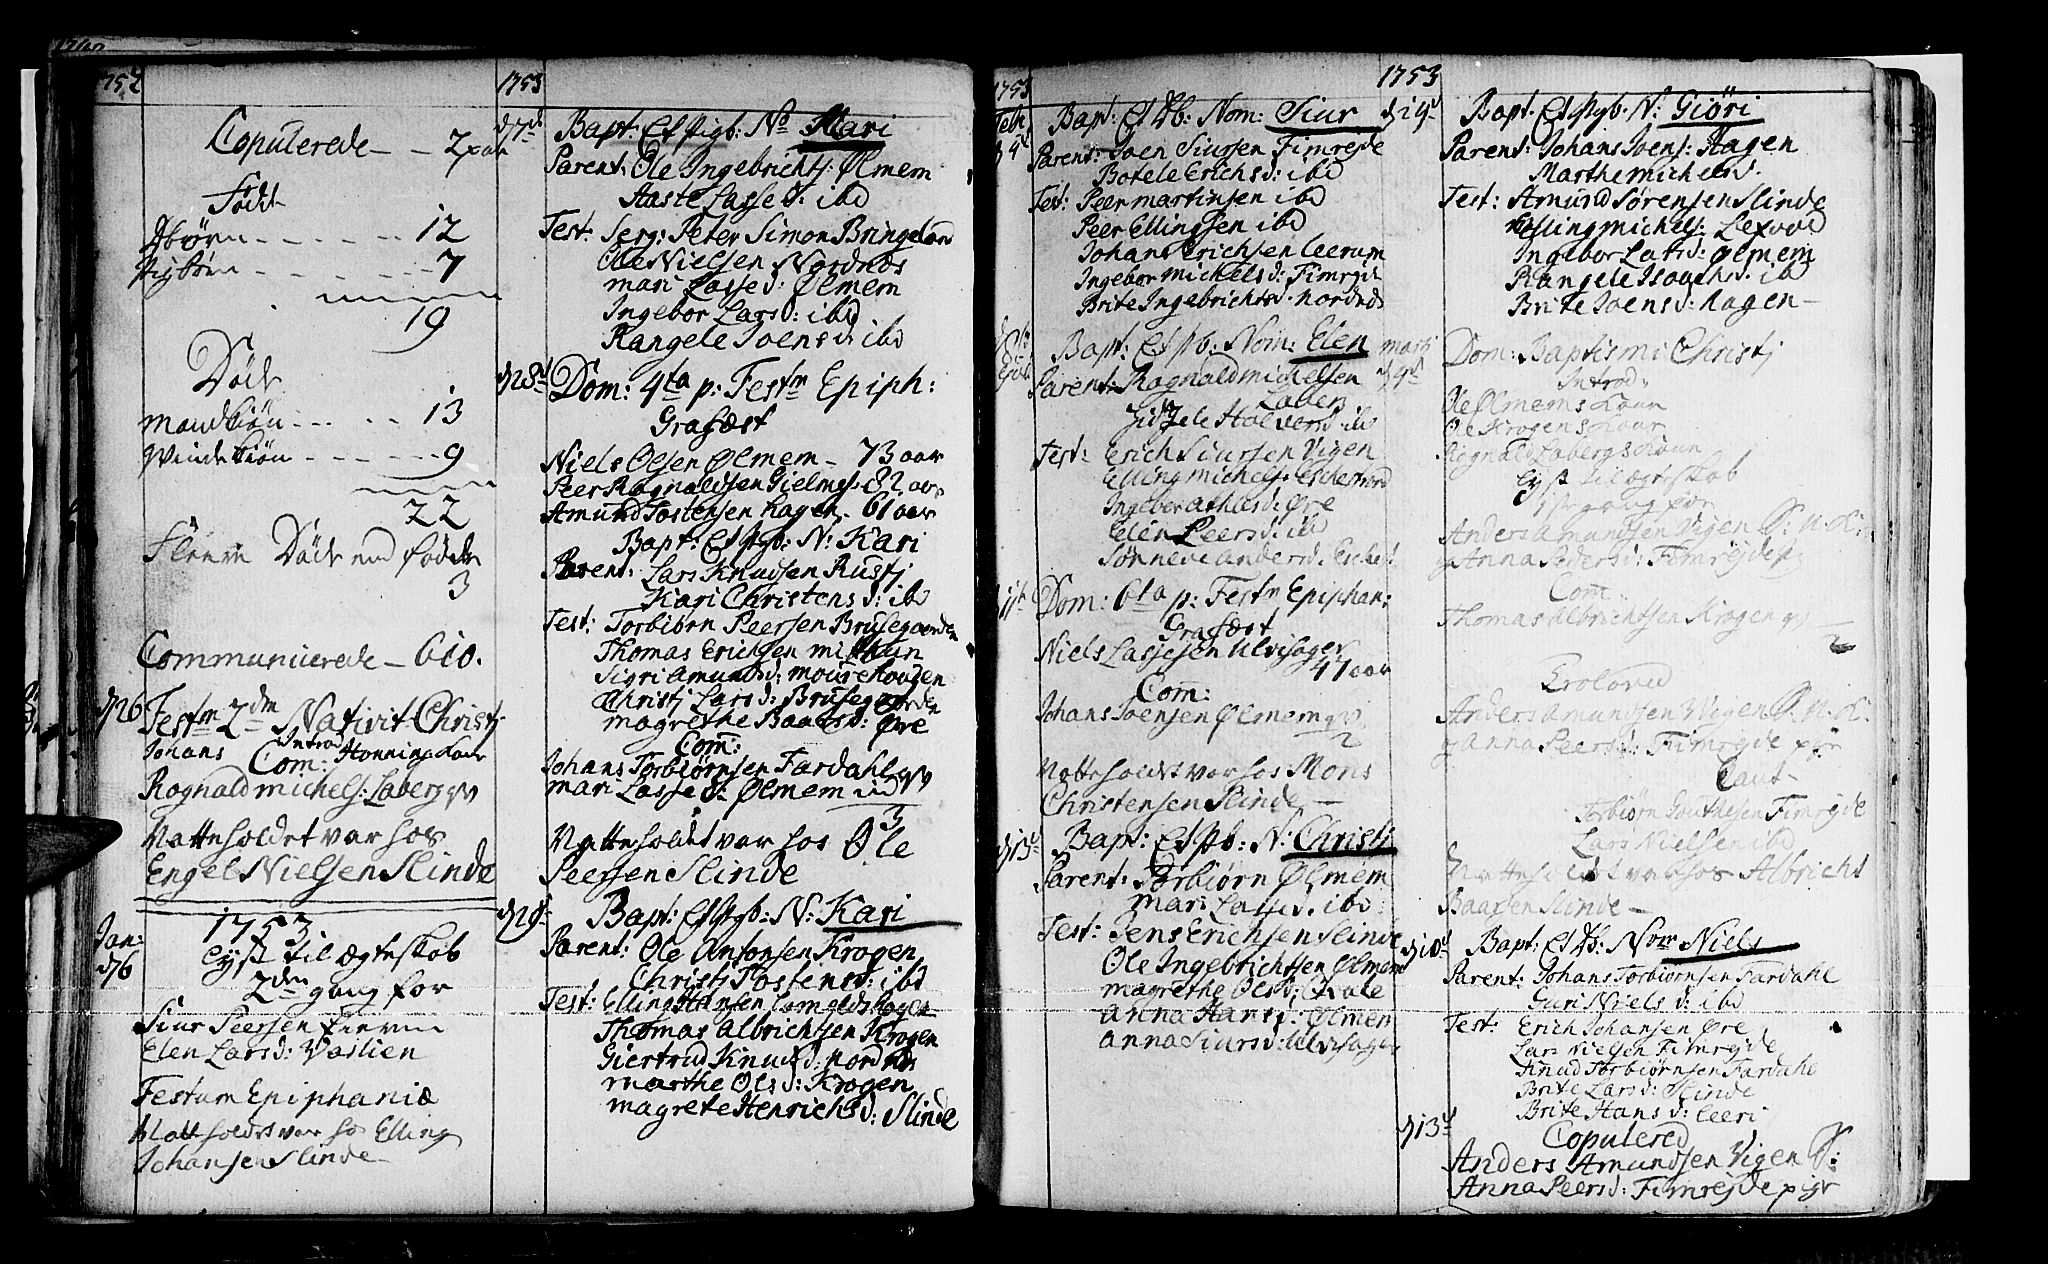 1752
Copulerede - - 2 par
Født
Dbørn - - - - - - 12
Pigbørn - - - - - - 7
19
Døde
Mandkiøn - - - - - 13
Qvindekiøn - - - - - 9
22
Fleere Døde end fødde
3
Communicerede - 610.
d 26 Festm 2dm Nativit Christj
Introd
Johans Honning Kone
Com:
Rognald michels: Laberg
Natteholdet var hos
Engel Nielsen Slinde
1753
Jan: d 6
Lyst til ægteskab
2den gang for
Siur Peersen
Elen Larsd: Vaslien
Festum Epiphaniæ
Natteholdet var hos Elling
Johansen Slinde
1753
d 7d Bapt: Et Pigb: No Mari
Parent: Ole Ingebrichts: Ølmem
Aaste Lasse d: ibd
Test: Serg: Peter Simon Bringeland
Ole Nielsen Nordnæs
mari Lasse d: Ølmem
Ingebor Lars d: ibd
Rangele Joens d: ibd
d 28d Dom: 4ta p: Festm Epiph:
Grafæst
Niels Olsen Ølmem - 73 aar
Peer Rognaldsen Gielmes: 82 aar
Amund Tostensen hagen - 61 aar
Bapt: Et Pigb: N: Kari
Parent: Lars Knudsen Rustj
Kari Christens d: ibd
Test: Torbiørn Peersen Brusegaarden
Thomas Erichsen
Sigri Amunds d:
Christj Lars d: Brusegaarde
magrethe Baards d: Øre
Com:
Johans Torbiørnsen Fardahl
mari Lasse d: Ølmem
3
Natteholdet var hos Ole
Peersen Slinde
d 29 Bapt: Et Pigb: N: Kari
Parent: Ole Antonsen Krogen
Christj Tostens d: ibd
Test: Elling Hansen
Thomas Albrichtsen Krogen
Giertrud Knuds d: nordnæs
marthe Ols d: Krogen
magrete Henrichs d: Slinde
1753
Bapt: Et Db: Nom: Siur
Parent: Joen Siursen Fimrejde
Botele Erichs d: ibd
Test: Peer martinsen ibd
Peer Ellingsen ibd
Johans Erichsen Leerum
Ingebor michels d: Fimrejde
Brite Ingebrichts d: nordnæs
Bapt: Et Pb: Nom: Elen
Parent: Rognald michelsen
Laberg
Sidzele Halvers d: ibd
Test: Erich Siursen Vigen
Elling michels: Eschestrand
Ingebor d: Øre
Elen Peers d: ibd
Sønneve anders d: Eschest
11te Dom: 6ta p: Festm Epiphan:
Grafæst
Niels Lassesen Ulvisager
47 aar
Com:
Johans Joensen Ølmem
2
Natteholdet var hos Mons
Christensen Slinde
d 13d Bapt: Et Pb: N: Christj
Parent: Torbiørn Ølmem
mari Lasse d: ibd
Test: Jens Erichsen Slinde
Ole Ingebrichtsen Ølmem
magrethe Ols d:
anna Hans d: Ølmem
anna Siurs d: Ulvisager
1753
d 19d Bapt: Et Pgb: N: Giöri
Parent: Johans Joens: Hagen
Marthe michels d:
Test: Amund Sørensen Slinde
Elling michels:
Ingebor Lars d: Ølmem
Rangele Isachs d: ibd
Brite Joens d: hagen
martj
d 4d Dom: Baptismi Christj
Introd:
Ole Ølmems Kone
Ole Krogens Kone
Rognald Labergs Kone
Lyst til ægteskab
1ste gang for
Anders Amundsen Vigen S: u: K:
og Anna Peders d: Fimrejde p:
Com:
Thomas Albrichtsen Krogen
2
Troloved
Anders Amundsen Vigen S: u: K:
og anna Peers d: Fimrejde pige
Caut
Torbiørn Fimrejde
Lars Nielsen ibd
Natteholdet var hos Albricht
Baarsen Slinde
d 10d Bapt: Et Db: Nom Niels
Parent: Johans Torbiørnsen Fardahl
Guri Niels d: ibd
Test: Erich Johansen Øre
Lars nielsen Fimrejde
Knud Torbiørnsen Fardahl
Brite Lars d: Slinde
Brite Hans d: Leeri
d 13d Copulered
Anders Amundsen Vigen S:
Anna Peers d: Fimrejde pige